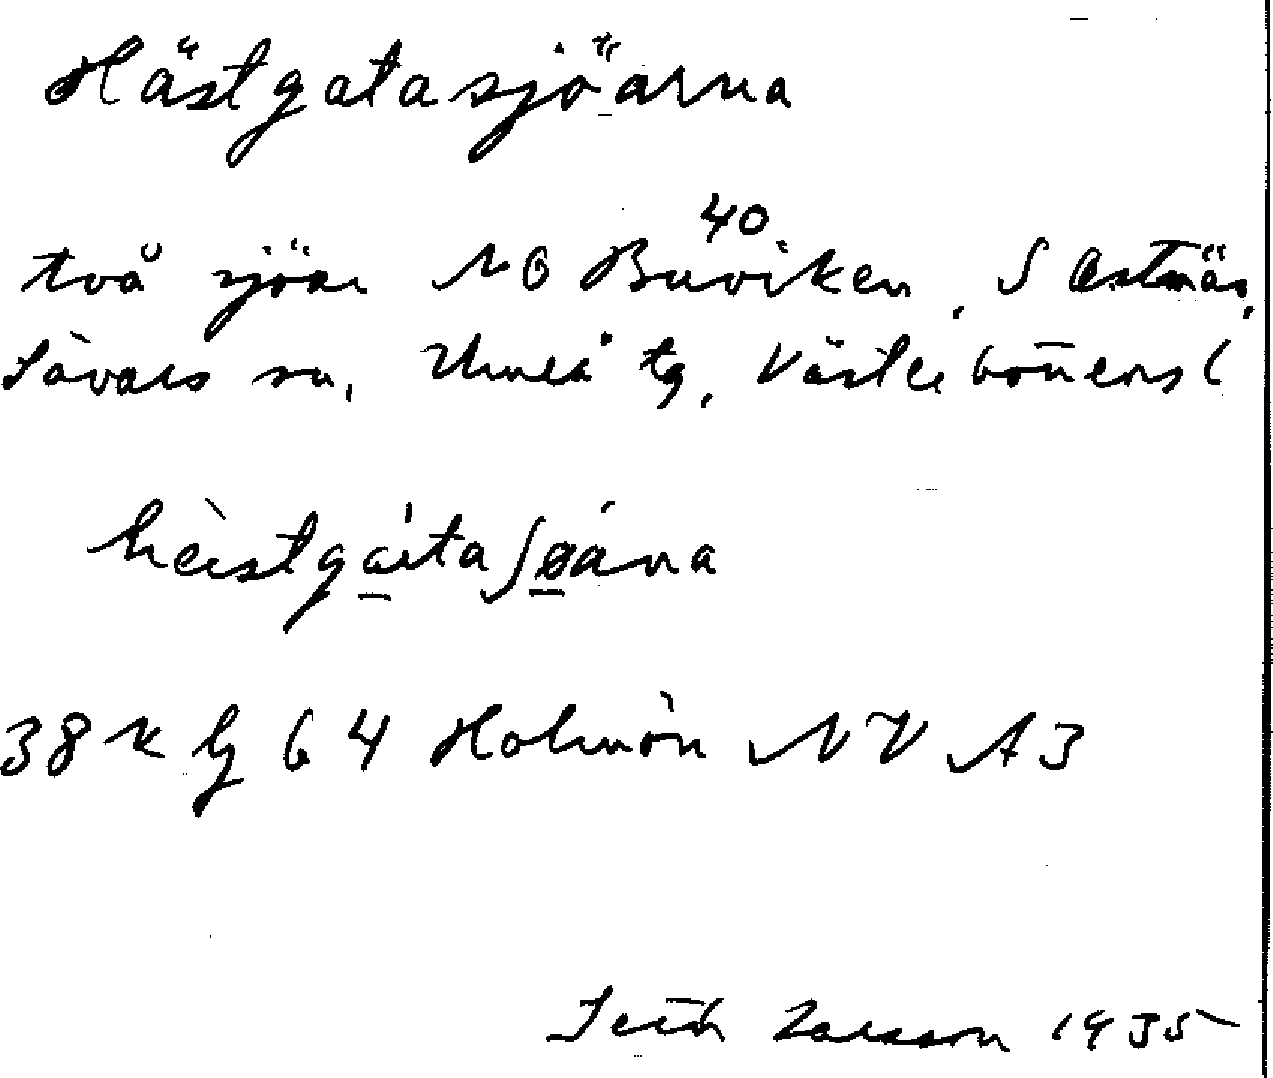 Hästgatasjöarna
40
två sjöar NO Buviken, S Ostnäs,
Sävars sn, Umeå tg, Västerbottens l
38 K bj 64 Holmön NV A3
Seth Larsson 1935